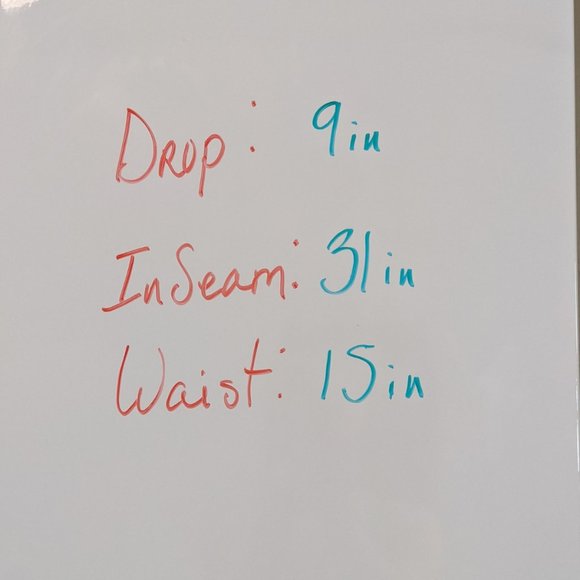 Drop: 9in
InSeam: 31in
Waist: 15in